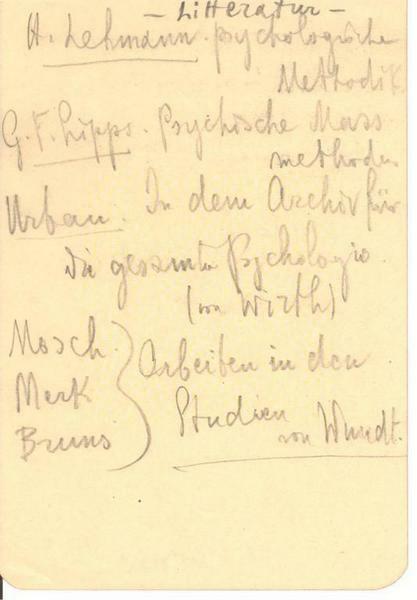 - Litteratur -
A. Lehmann. psychologische
Methodik.
G. F. Lipps. Psychische Mass
methoden
Urban. In dem Archiv für
die gesamte Psychologie.
(von Wirth)
Mosch
Merk
Bruns
Arbeiten in den
Studien
von Wundt.